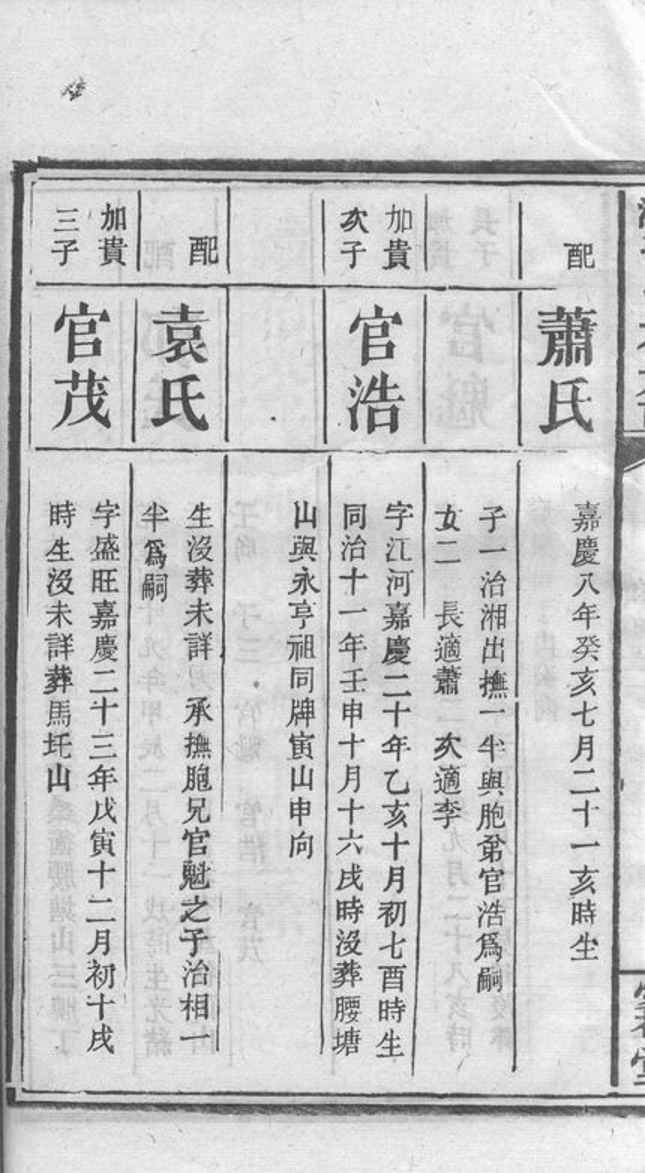 配
蕭氏
嘉慶八年癸亥七月二十一亥時生
子一治湘出撫一半與胞弟官浩爲嗣
女二 長適蕭 次適李
加貴
次子
官浩
字江河嘉慶二十年乙亥十月初七酉時生
同治十一年壬申十月十六戌時沒葬腰塘
山與永亨祖同牌寅山申向
配
袁氏
生沒葬未詳 承撫胞兄官魁之子治相一
半爲嗣
加貴
三子
官茂
字盛旺嘉慶二十三年戊寅十二月初十戌
時生沒未詳葬馬圫山